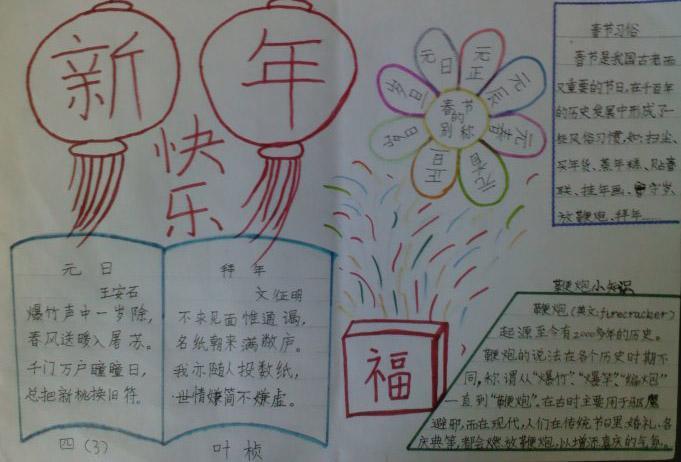 新年
快乐
元日
王安石
爆竹声中一岁除,
春风送暖入屠苏。
千门万户曈曈日,
总把新桃换旧符。
四(3)
拜年
文征明
不求见面惟通谒,
名纸朝来满敝庐。
我亦随人投数纸,
世情嫌简不嫌虚。
叶桢
春节
的
别称
元日
元正
元辰
元春
元朔
正旦
福
春节习俗
春节是我国古老而
又重要的节日,在千百年
的历史发展中形成了一
些风俗习惯,如:扫尘、
买年货、蒸年糕、贴春
联、挂年画、守岁、
放鞭炮、拜年……
鞭炮小知识
鞭炮(英文:firecracker)
起源至今有2000多年的历史。
鞭炮的说法在各个历史时期不
同,称谓从“爆竹”、“爆竿”、“编炮”
一直到“鞭炮”。在古时主要用于驱魔
避邪,而在现代,人们在传统节日里、婚礼、各
庆典等,都会燃放鞭炮,以增添喜庆的气氛。